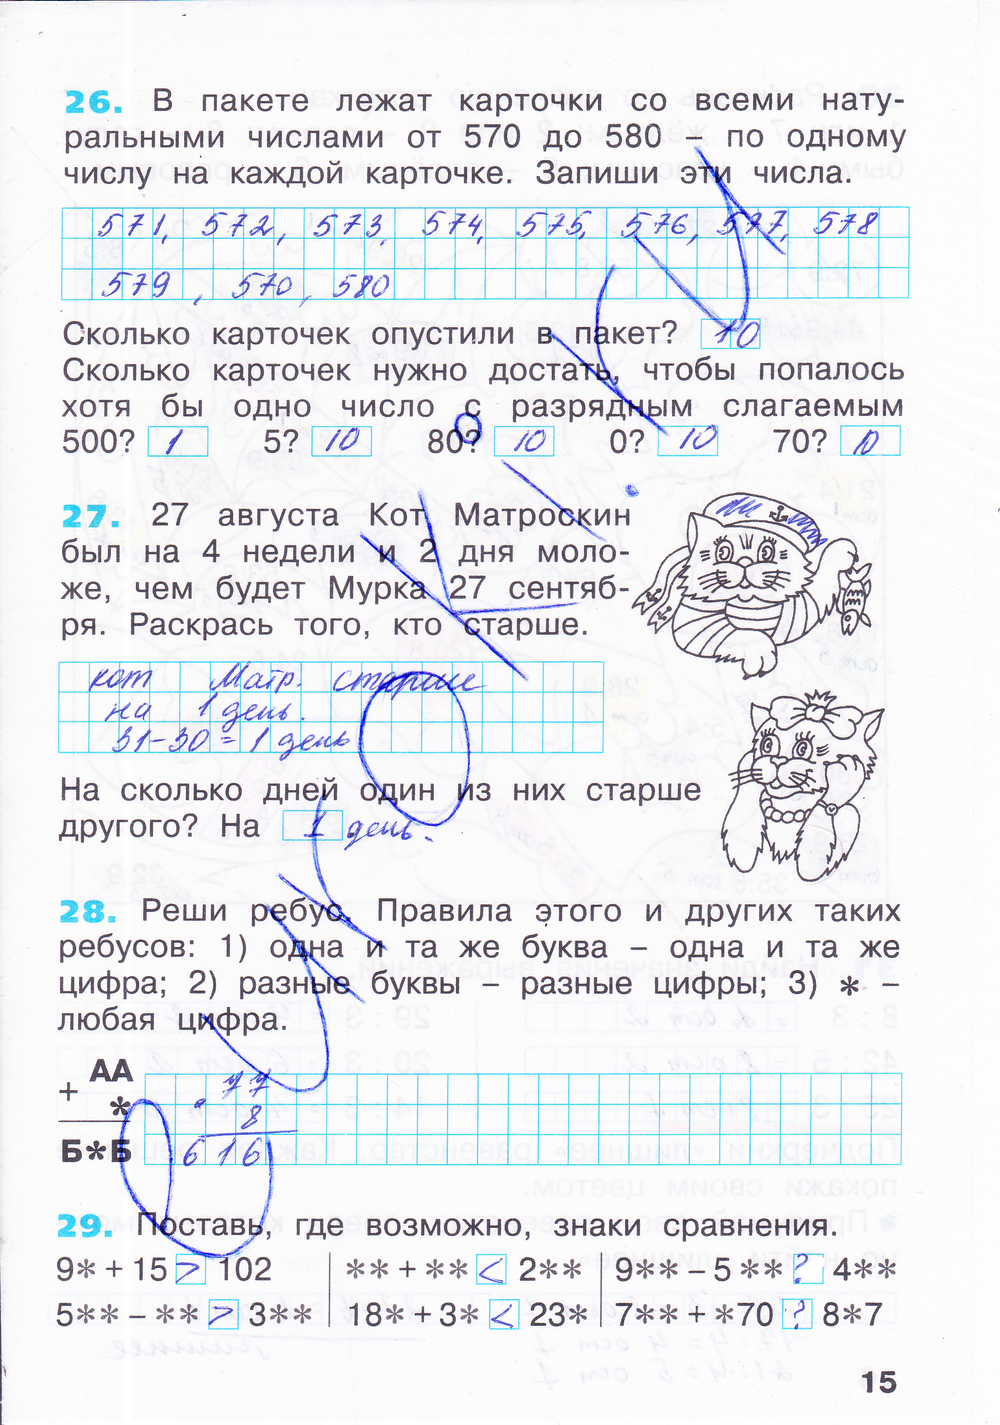 26. В пакете лежат карточки со всеми нату-
ральными числами от 570 до 580 – по одному
числу на каждой карточке. Запиши эти числа.
571, 572, 573, 574, 575, 576, 577, 578
579, 570, 580
Сколько карточек опустили в пакет? 10
Сколько карточек нужно достать, чтобы попалось
хотя бы одно число с разрядным слагаемым
500? 1 5? 10 80? 10 0? 10 70? 10
27. 27 августа Кот Матроскин
был на 4 недели и 2 дня моло-
же, чем будет Мурка 27 сентяб-
ря. Раскрась того, кто старше.
кот Матр. старше
на 1 день.
31-30 = 1 день
На сколько дней один из них старше
другого? На 1 день.
28. Реши ребус. Правила этого и других таких
ребусов: 1) одна и та же буква – одна и та же
цифра; 2) разные буквы – разные цифры; 3) * –
любая цифра.
АА 77
+ * 8
Б*Б 616
29. Поставь, где возможно, знаки сравнения.
9* + 15 > 102 ** + ** < 2** 9** – 5 ** ? 4**
5** – ** > 3** 18* + 3* < 23* 7** + *70 ? 8*7
15